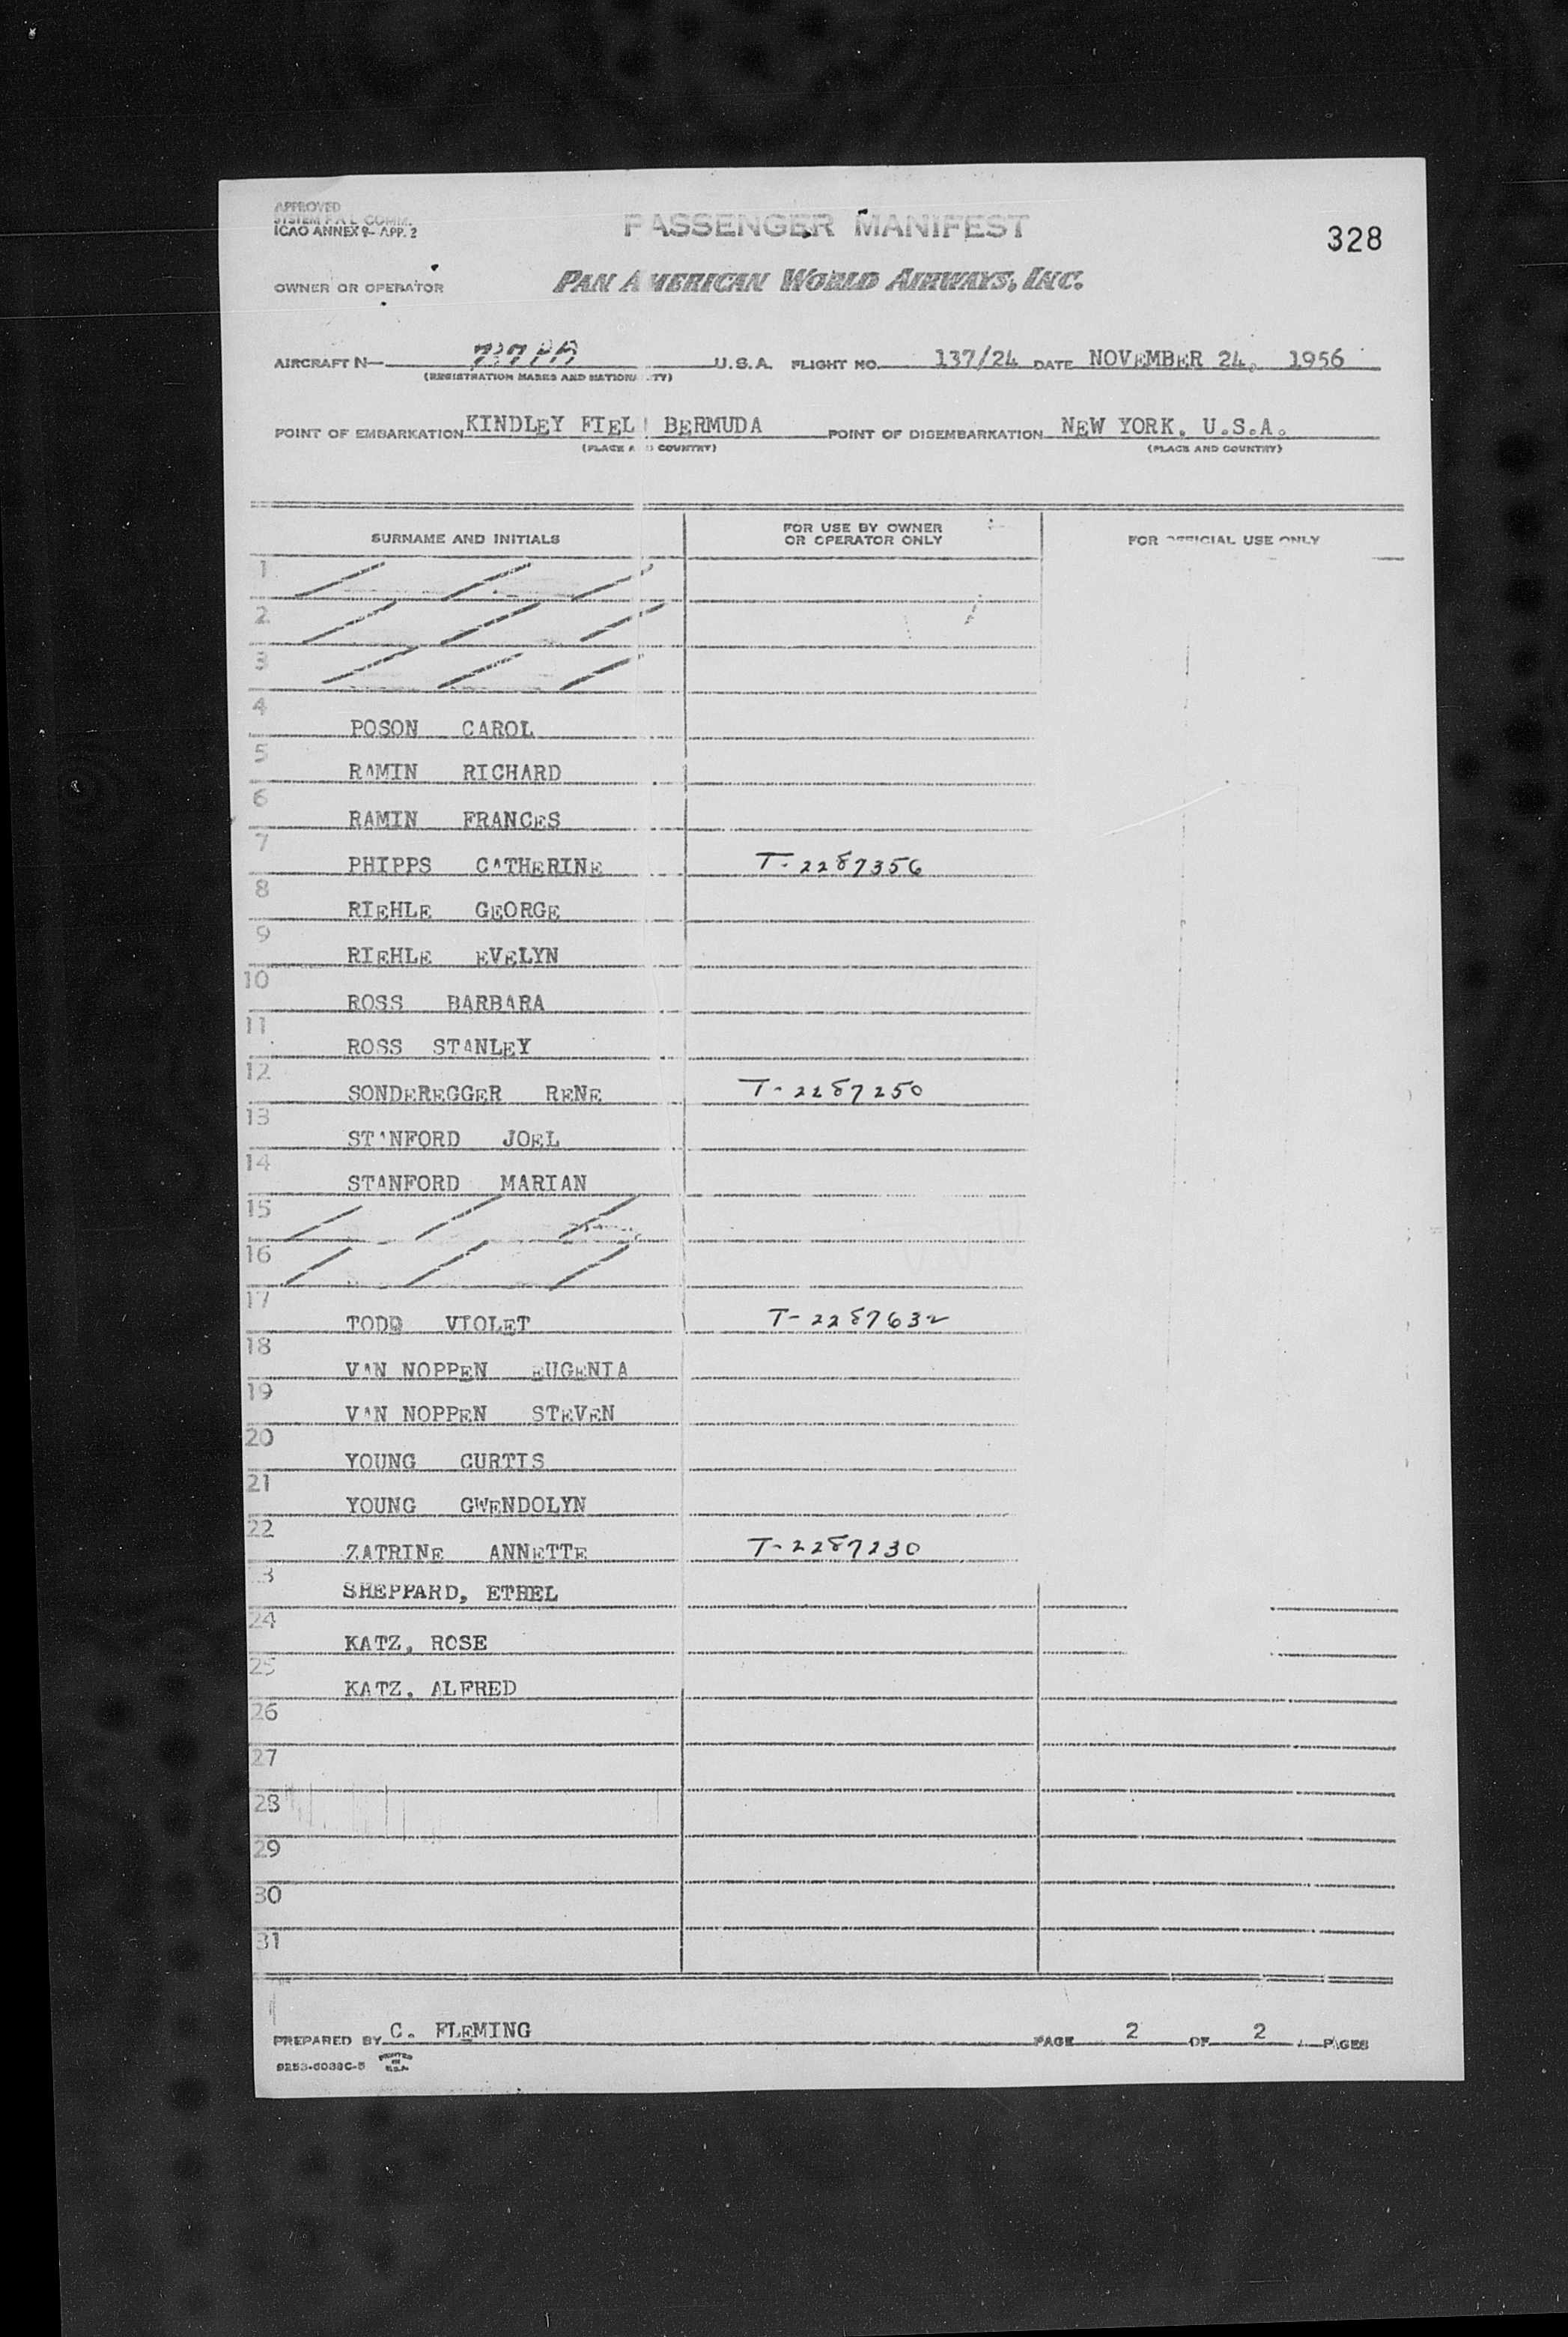 APPROVED
SYSTEM P.A.L. COMM.
ICAO ANNEX 9- APP. 2
PASSENGER MANIFEST
328
OWNER OR OPERATOR
PAN AMERICAN WORLD AIRWAYS, INC.
AIRCRAFT N- U.S.A. FLIGHT NO. 137/24 DATE NOVEMBER 24, 1956
(REGISTRATION MARKS AND NATIONALITY)
POINT OF EMBARKATION KINDLEY FIEL BERMUDA POINT OF DISEMBARKATION NEW YORK, U.S.A.
(PLACE AND COUNTRY) (PLACE AND COUNTRY)
SURNAME AND INITIALS FOR USE BY OWNER OR OPERATOR ONLY FOR OFFICIAL USE ONLY
1
2
3
4 POSON CAROL
5 RAMIN RICHARD
6 RAMIN FRANCES
7 PHIPPS CATHERINE T-2287356
8 RIEHLE GEORGE
9 RIEHLE EVELYN
10 ROSS BARBARA
11 ROSS STANLEY
12 SONDEREGGER RENE T-2287250
13 STANFORD JOEL
14 STANFORD MARIAN
15
16
17 TODD VIOLET T-2287632
18 VAN NOPPEN EUGENIA
19 VAN NOPPEN STEVEN
20 YOUNG CURTIS
21 YOUNG GWENDOLYN
22 ZATRINE ANNETTE T-2287230
23 SHEPPARD, ETHEL
24 KATZ, ROSE
25 KATZ, ALFRED
26
27
28
29
30
31
PREPARED BY C. FLEMING PAGE 2 OF 2 PAGES
9253-6038C-5 PRINTED IN U.S.A.